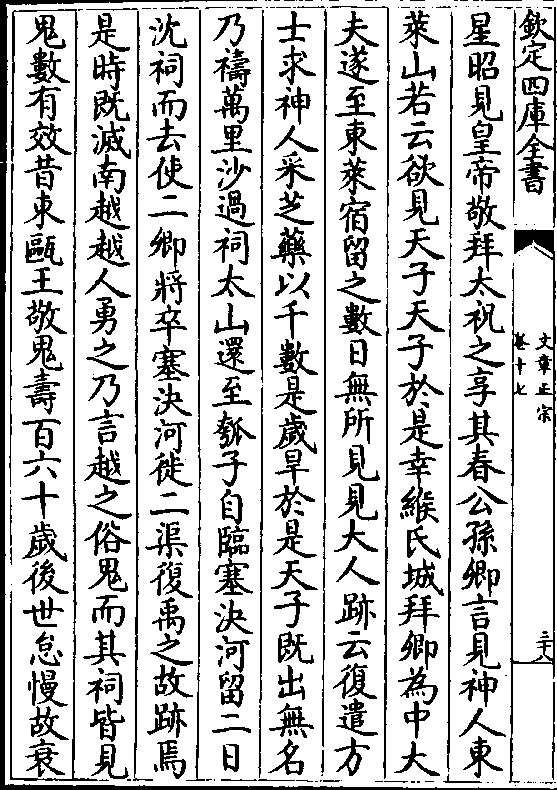 欽定四庫全書
文章正宗
卷十七
二十八
星昭見皇帝敬拜太祝之享其春公孫卿言見神人東
萊山若云欲見天子天子於是幸緱氏城拜卿為中大
夫遂至東萊宿留之數日無所見見大人跡云復遣方
士求神人采芝藥以千數是歲旱於是天子既出無名
乃禱萬里沙過祠太山還至瓠子自臨塞決河留二日
沈祠而去使二卿將卒塞決河徙二渠復禹之故跡焉
是時既滅南越越人勇之乃言越之俗鬼而其祠皆見
鬼數有效昔東甌王敬鬼壽百六十歲後世怠慢故衰